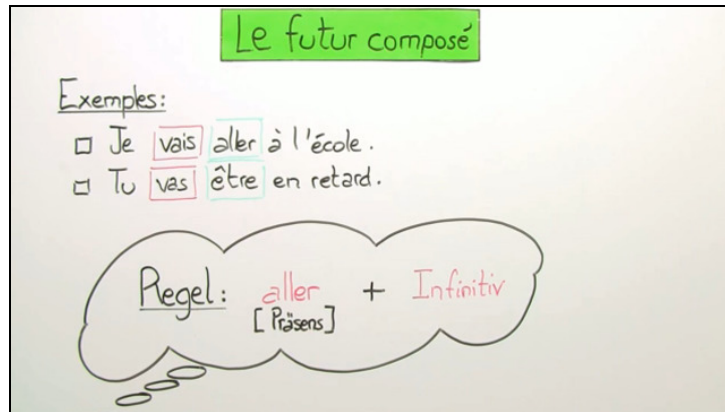 Le futur composé
Exemples:
Je vais aller à l'école.
Tu vas être en retard.
Regel: aller + Infinitiv
[Präsens]